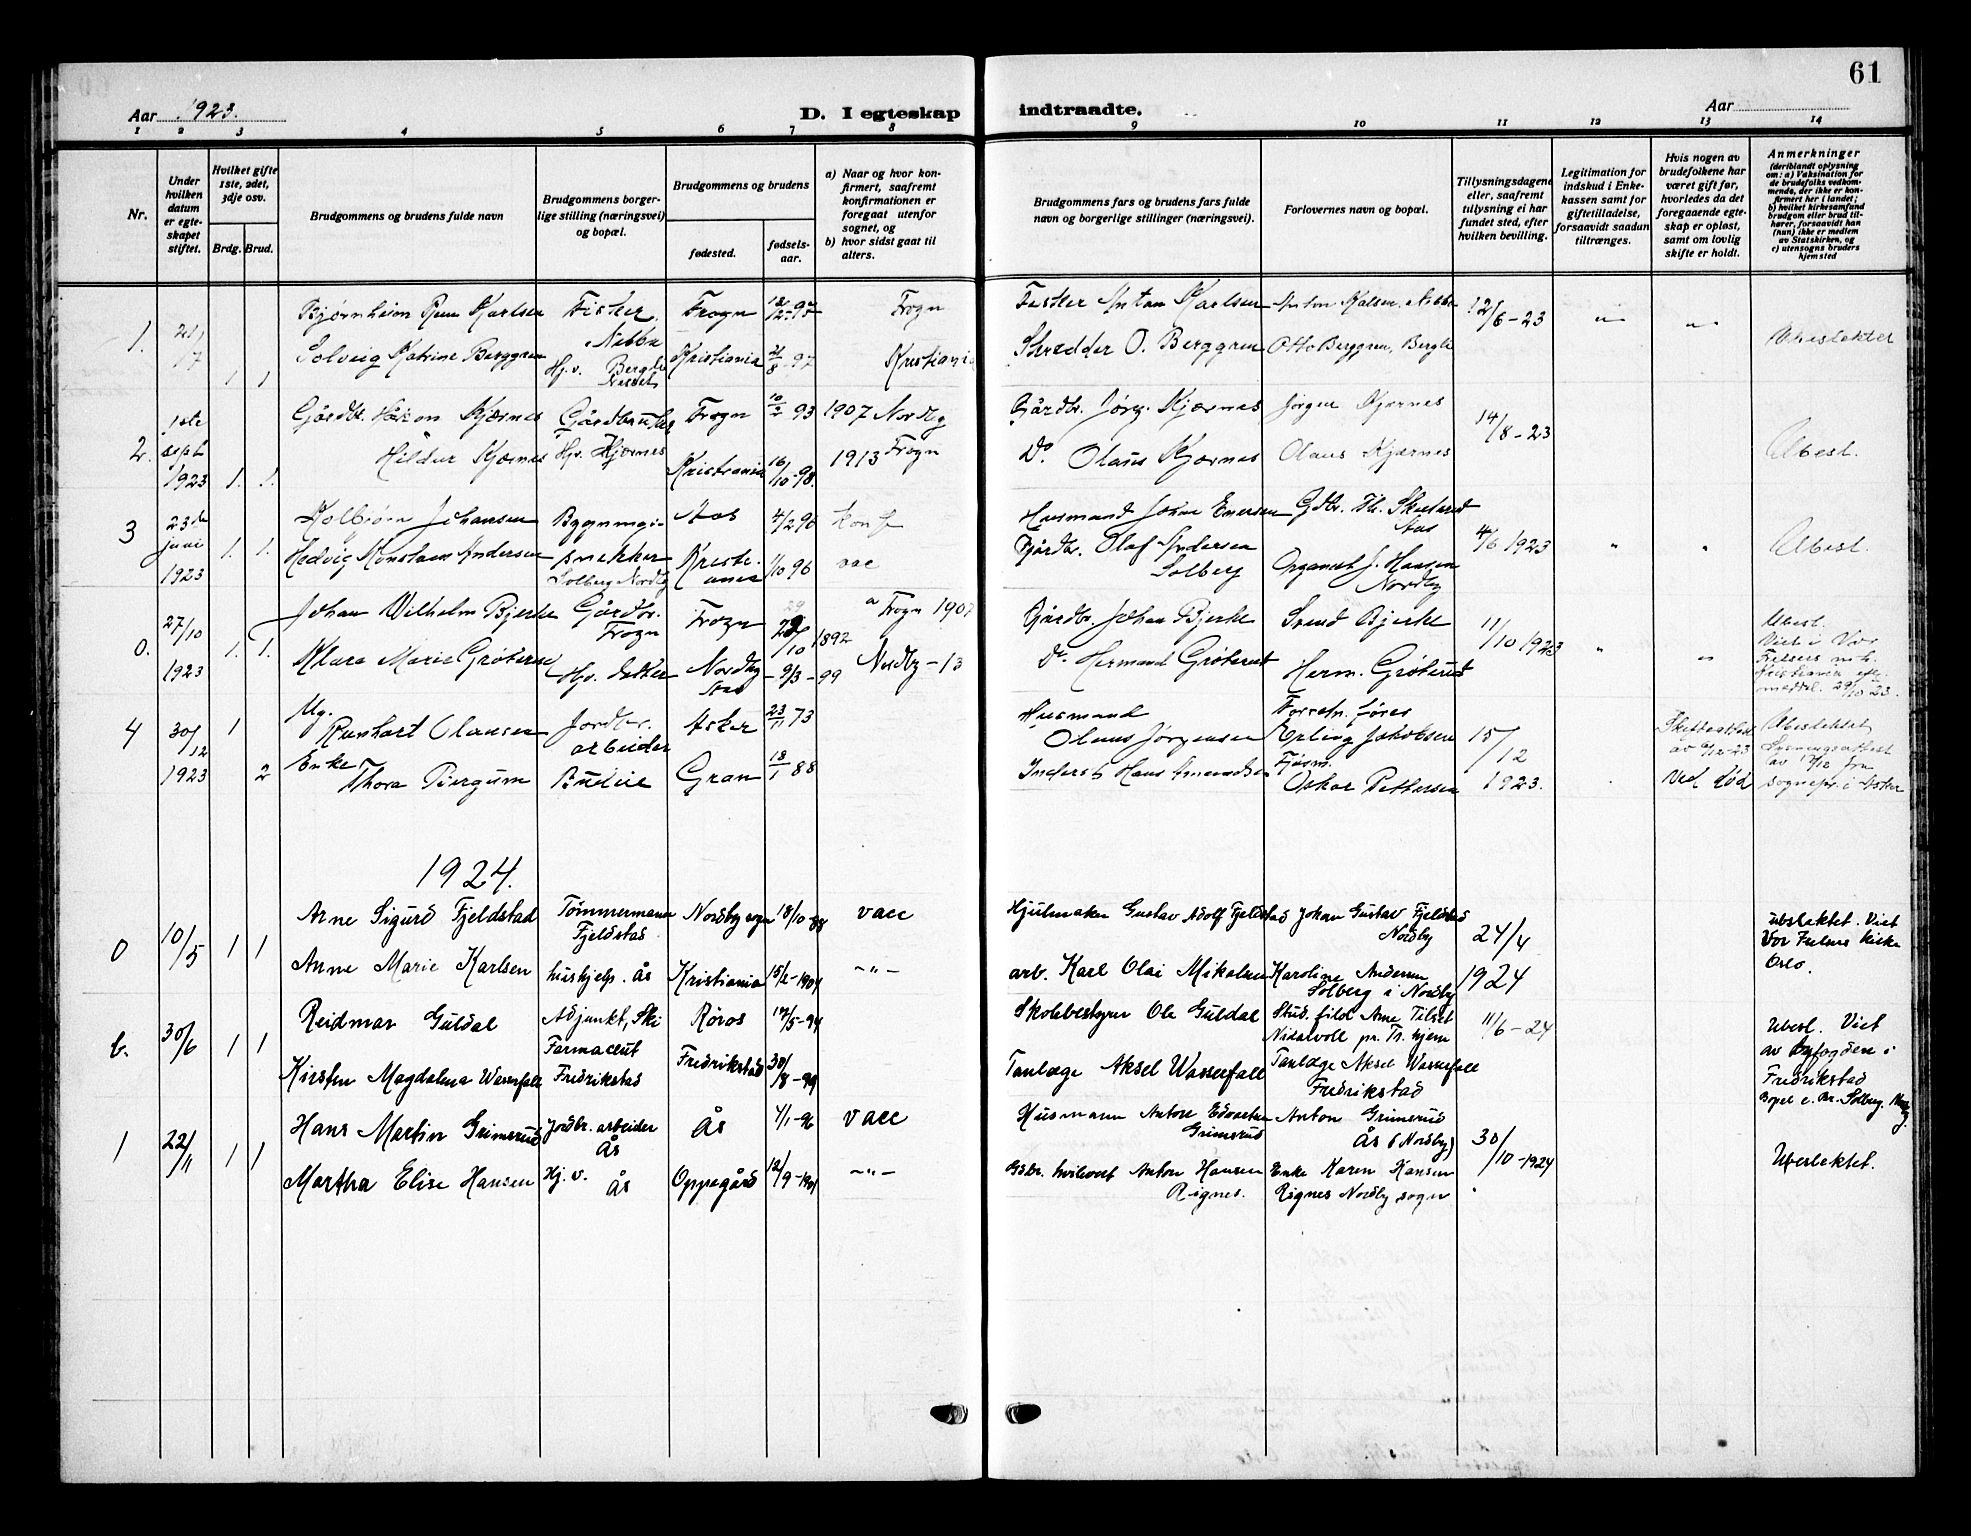 61
Aar 1923.
D. I egteskap indtraadte.
Aar
1 2 3 4 5 6 7 8 9 10 11 12 13 14
Nr.
Under hvilken datum er egteskapet stiftet.
Hvilket gifte 1ste, 2det, 3dje osv.
Brdg. Brud.
Brudgommens og brudens fulde navn
Brudgommens borgerlige stilling (næringsvei) og bopæl.
Brudgommens og brudens
fødested.
fødselsaar.
a) Naar og hvor konfirmert, saafremt konfirmationen er foregaat utenfor sognet, og
b) hvor sidst gaat til alters.
Brudgommens fars og brudens fars fulde navn og borgerlige stillinger (næringsvei).
Forlovernes navn og bopæl.
Tillysningsdagene eller, saafremt tillysning ei har fundet sted, efter hvilken bevilling.
Legitimation for indskud i Enkekassen samt for giftetilladelse, forsaavidt saadan tiltrænges.
Hvis nogen av brudefolkene har været gift før, hvorledes da det foregaaende egteskap er opløst, samt om lovlig skifte er holdt.
Anmerkninger
(deriblandt oplysning om: a) Vaksination for de brudefolks vedkommende, der ikke er konfirmert her i landet; b) hvilket kirkesamfund brudgom eller brud tilhører, forsaavidt han (hun) ikke er medlem av Statskirken, og c) utensogns bruders hjemsted
1. Karlsen Fisker Frogn Frogn Fisker Anton Karlsen 12/6-23
Solveig Katrine Berggren Kristiania Kristiania O. Berggren Otto Berggren,
1 1 Hj.v.
2. 1ste sept 1923 1. 1. Gårdbr. Håkon Kjærnes Frogn 10/2 93 1907 Nordby Gårdbr. Jørg. Kjærnes Jørgen Kjærnes 14/8-23 Ubesl.
Hildur Kjærnes Hjv. Kjærnes Kristiania 16/10-98. 1913 Frogn Do. Olaus Kjærnes Olaus Kjærnes
3 23de juni 1923 1. 1. Kolbjørn Johansen Bygningssnekker Aas 4/2 96 konf Husmand Johan 4/6 1923 Ubesl.
Hedvig Andersen Solberg Nordby Kristiania 1/10 96 vac Gårdbr. Olaf Andersen Solberg J. Hansen Nordby
0. 27/10 1923 1. 1. Johan Wilhelm Bjerke Gårdbr. Frogn Frogn 1892 a Frogn 1907 Gårdbr. Johan Bjerke Svend Bjerke 11/10 1923 Ubesl.
Klara Marie Grøterud Nordby Aas 9/3-99 Nordby -13 Do. Hermand Grøterud Herm. Grøterud Viet i Vor Frelsers Kristiania 29/10 23.
4 30/12 1923 1 2 Ug. Olausen Jordbr. arbeider Asker 23/11 73 Husmand Olaus Jørgensen Erling Jakobsen 15/12 1923.
Enke Thora Bergum Budeie Gran 18/1 88 Hans Amundsen Oskar Pettersen ved død sognepr. i Asker
1924.
0 10/5 1 1 Arne Sigurd Fjeldstad Tømmermann Fjeldstad Nordby sogn 18/10-88 vacc Hjulmaker Gustav Adolf Fjeldstad Johan Gustav Fjeldstad Nordby 24/4 1924 ubeslektet. Viet Vor Frelsers kirke Oslo.
Anne Marie Karlsen hushjelp. Ås Kristiania 15/2-1904 -"- arb. Karl Olai Mikalsen Karoline Andersen Solberg i Nordby
b. 30/6 1 1 Reidmar Guldal Adjunkt, Ski Røros 19/5-94 Skolebestyrer Ole Guldal Stud. filol Arne Tilset Nidarvoll pr. Tr. hjem 11/6-24 Ubesl. Viet av byfogden i Fredrikstad
Kirsten Magdalena Wasserfall Farmaceut Fredrikstad Fredrikstad 30/8-99 Tanlæge Aksel Wasserfall Tanlæge Aksel Wasserfall Fredrikstad Bopel e. Br. Solberg. Nordby
1 22/11 1 1 Hans Martin Grimsrud Jordbr. arbeider Ås Ås 4/1-96 vacc Husmann Anton Edvartsen Grimsrud Anton Grimsrud Ås (Nordby) 30/10-1924 Ubeslektet.
Martha Elise Hansen Hj. v. Ås Oppegård 12/9-1901 -"- Anton Hansen Rignes. Enke Karen Hansen Rignes Nordby sogn